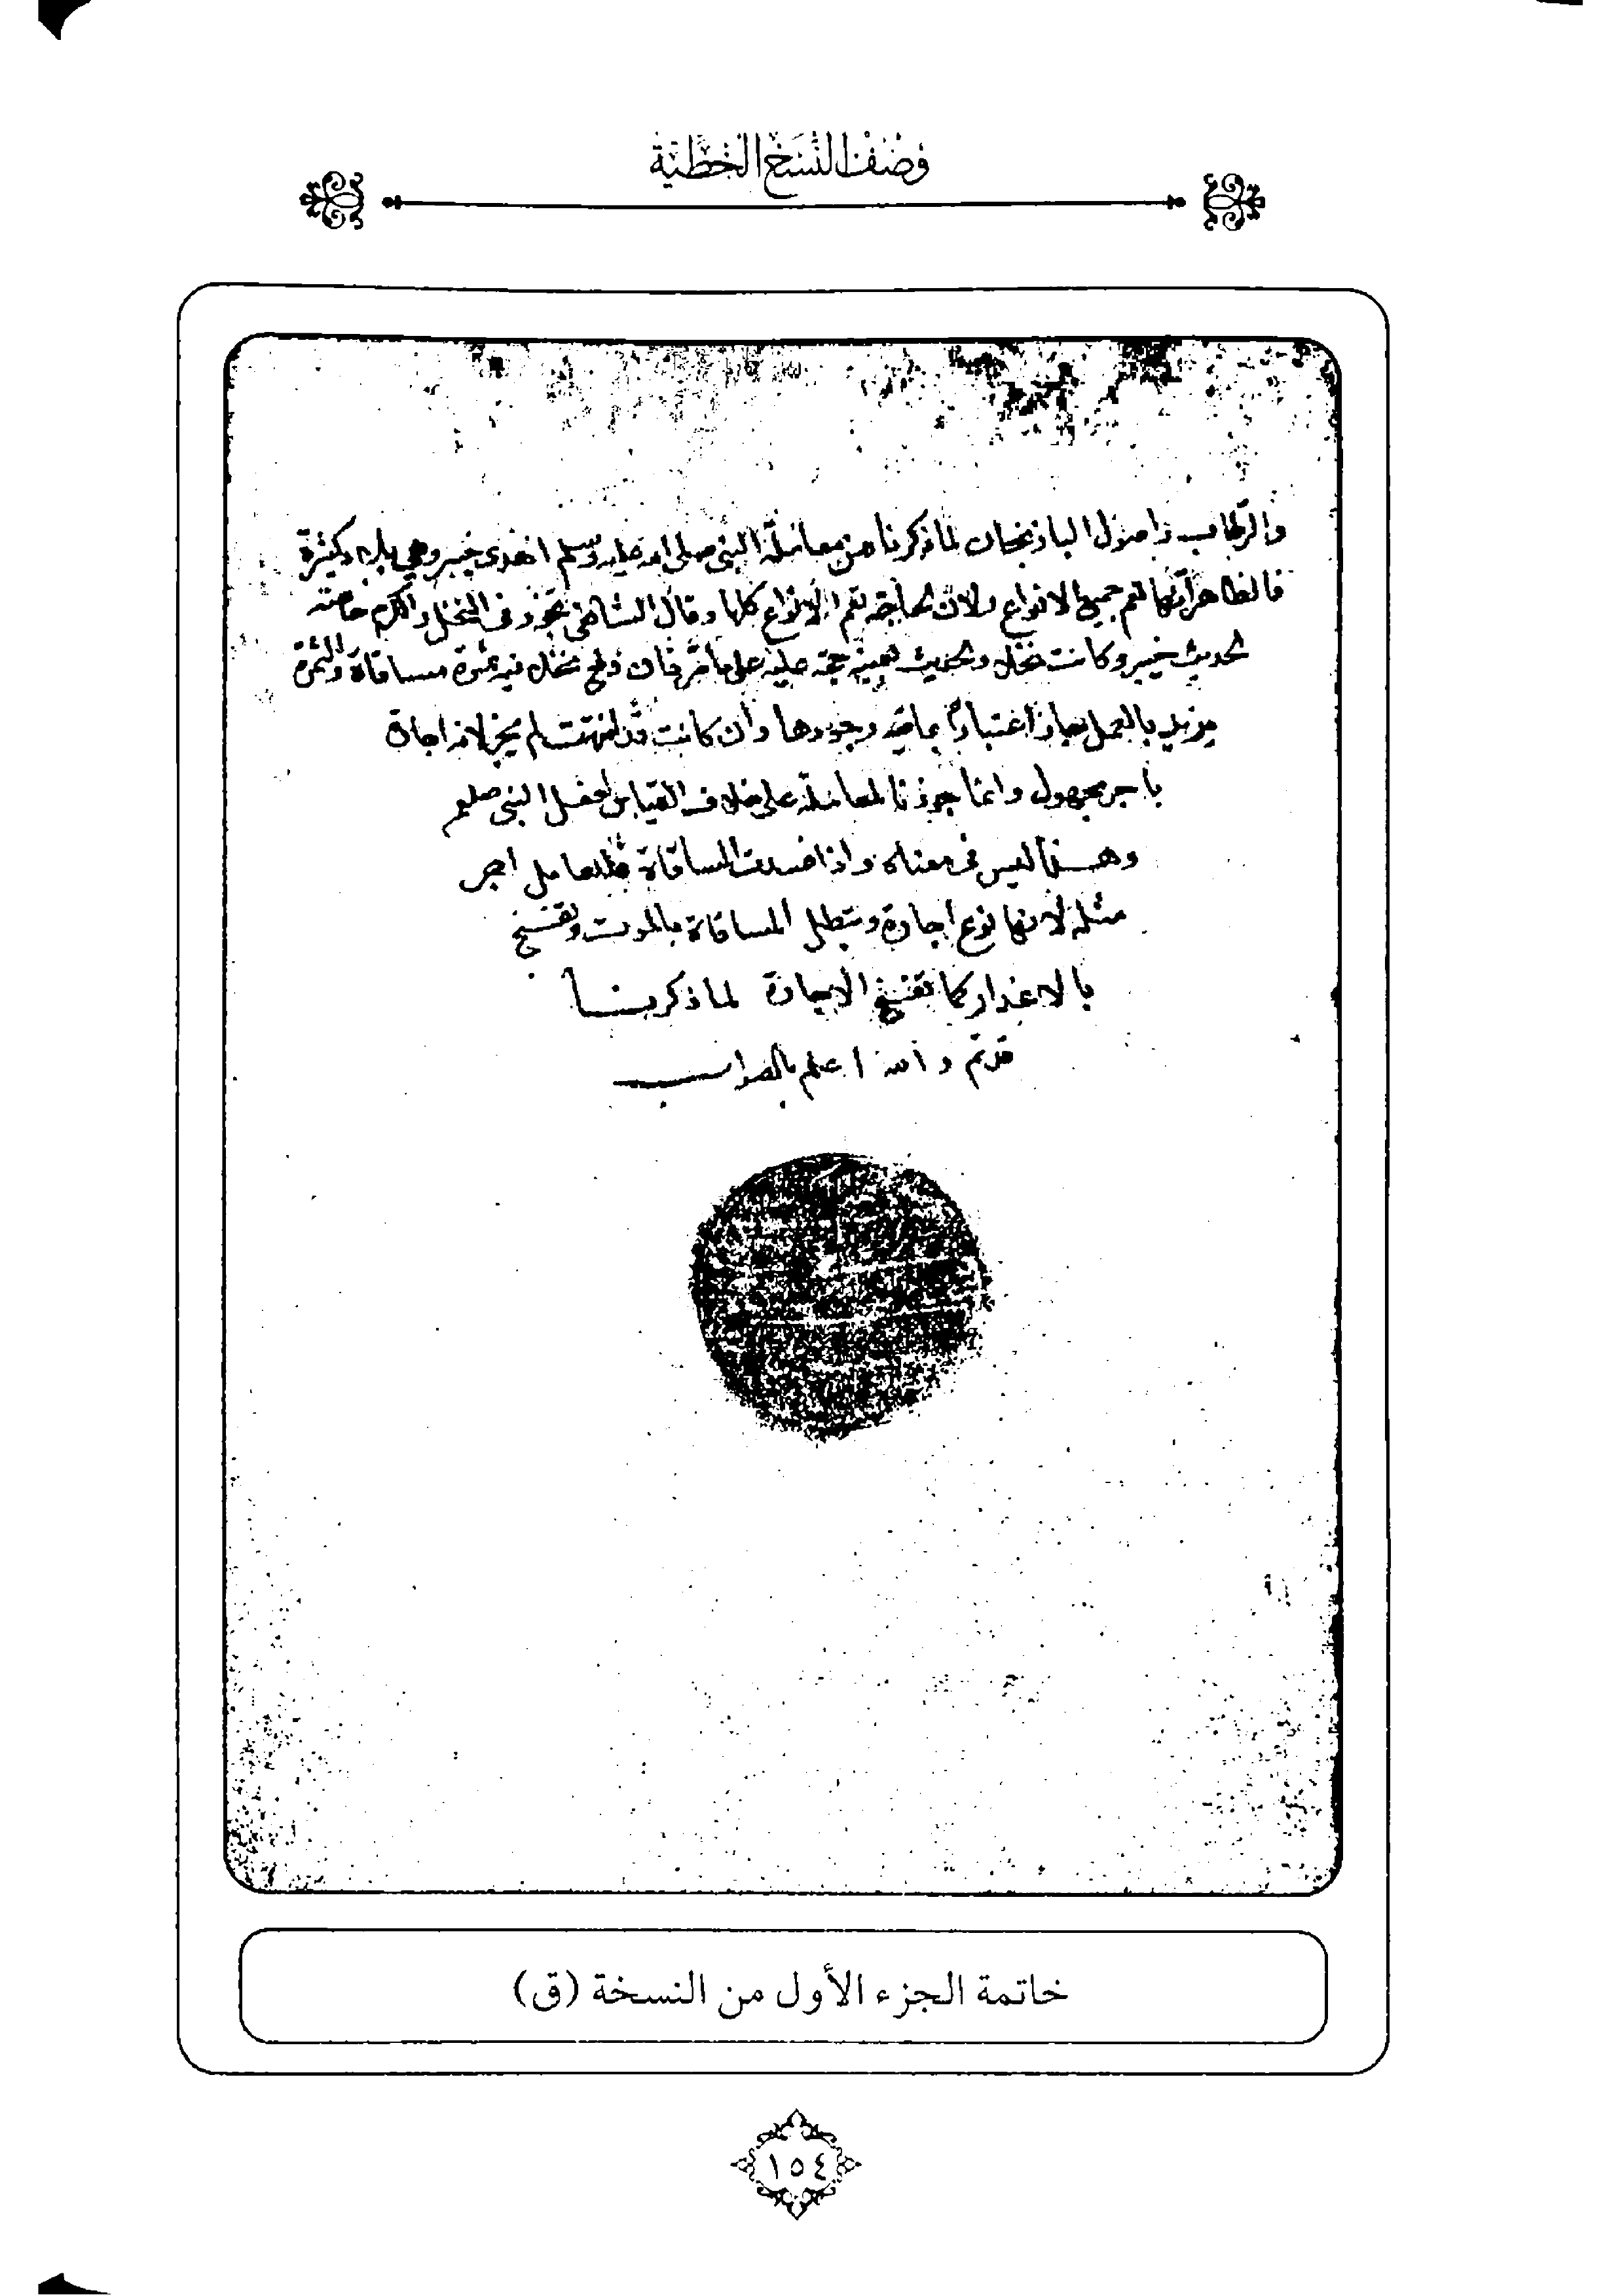 وصف النسخ الخطية
والرطاب واصول الباذنجان لما ذكرنا من معاملة النبي صلى الله عليه وسلم اهدى خيبر وهي بلدة كثيرة
فالظاهر انها تعم جميع الانواع ولان الحاجة تعم الانواع كلها وقال الشافعي تجوز في النخل والكرم خاصة
لحديث خيبر وكانت نخل والحديث بعينه حجة عليه على ما مر فان دفع نخلا فيه ثمرة مساقاة والثمرة
يزيد بالعمل جاز اعتبارا بما قبل وجودها وان كانت قد انتهت لم يجز لانه اجارة
باجر مجهول وانما جوزنا المعاملة على خلاف القياس لفعل النبي صلعم
وهذا ليس في معناه واذا فسدت المساقاة فللعامل اجر
مثله لانها نوع اجارة وتبطل المساقاة بالموت وتفسخ
بالاعذار كما تفسخ الاجارة لما ذكرنا
قد تم والله اعلم بالصواب
خاتمة الجزء الأول من النسخة (ق)
١٥٤